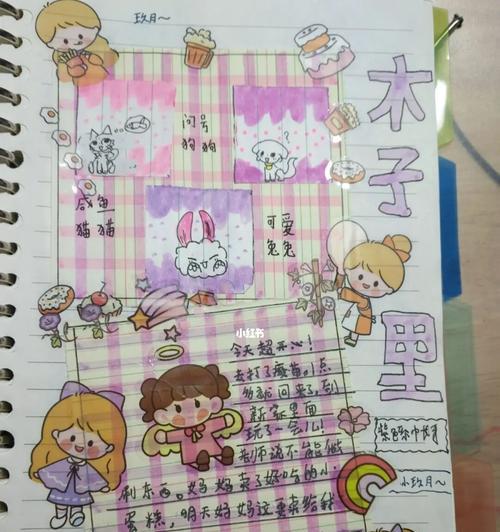 玖月~
木子里
问号
狗狗
咸鱼
猫猫
可爱
兔兔
小红书
今天超开心!
去打了疫苗,1点
多就回来了,到
新家里面
玩了一会儿!
老师说不能做
东西。妈妈买了好吃的小
蛋糕,明天妈妈还要卖给我
~小玖月~